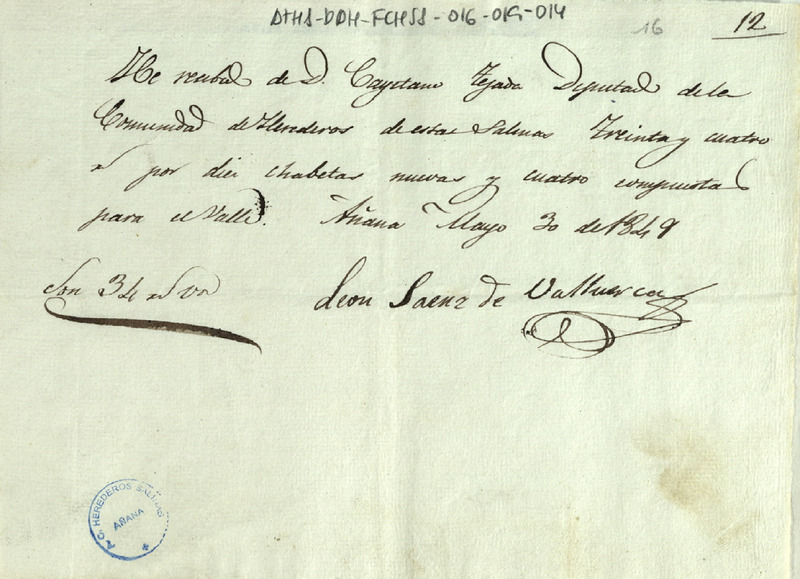 ATHA-DDH-FCHSS-016-019-014
16
12
He recibido de D. Cayetano Tejada Diputado de la
Comunidad de Herederos de estas Salinas Treinta y cuatro
rs por diez chabetas nuevas y cuatro compuestas
para el Valle. Añana Mayo 30 de 1849
Son 34 rs vn
Leon Saenz de Valluerca
A. C. HEREDEROS SALINAS
AÑANA